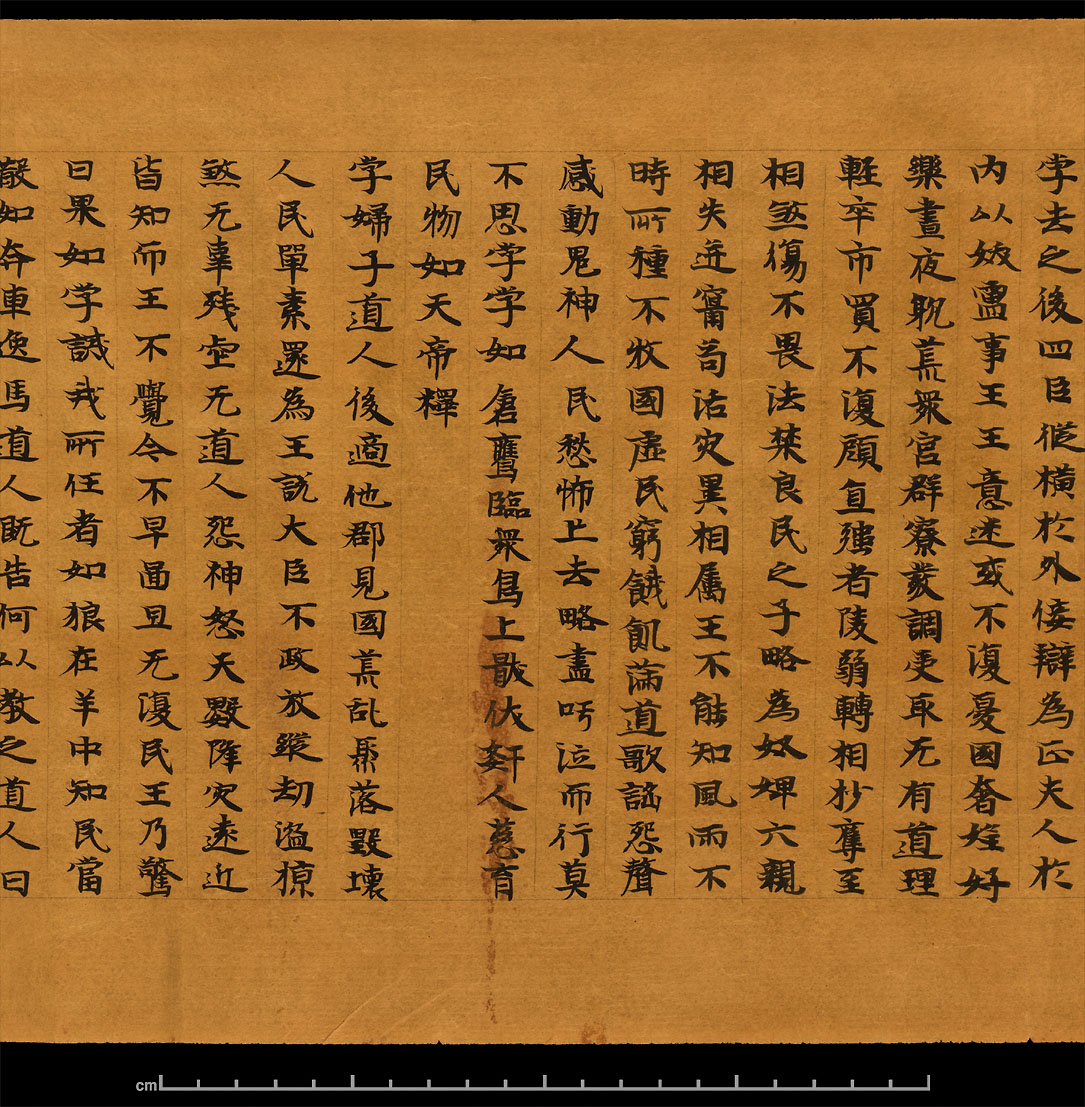 孛去之後四臣縱橫於外佞辯為正夫人於
内以妭蠱事王王意迷或不復憂國奢婬好
樂晝夜躭荒衆官群寮發調吏取无有道理
輕卒市買不復顧直强者陵弱轉相抄奪至
相煞傷不畏法禁良民之子略為奴婢六親
相失迸竄苟活灾異相属王不能知風雨不
時所種不收國虛民窮餓飢滿道歌謡怨聲
感動鬼神人民愁怖上去略盡呼泣而行莫
不思学学如倉鷹臨衆鳥上散伏奸人慈育
民物如天帝釋
学婦子道人後適他郡見國荒乱聚落毀壞
人民單素還為王説大臣不政放縱劫盜掠
煞无辜残虐无道人怨神怒天毉降灾遠近
皆知而王不覺今不早啚且无復民王乃驚
曰果如学誡我所任者如狼在羊中知民當
散如奔車逸馬道人既告何以教之道人曰